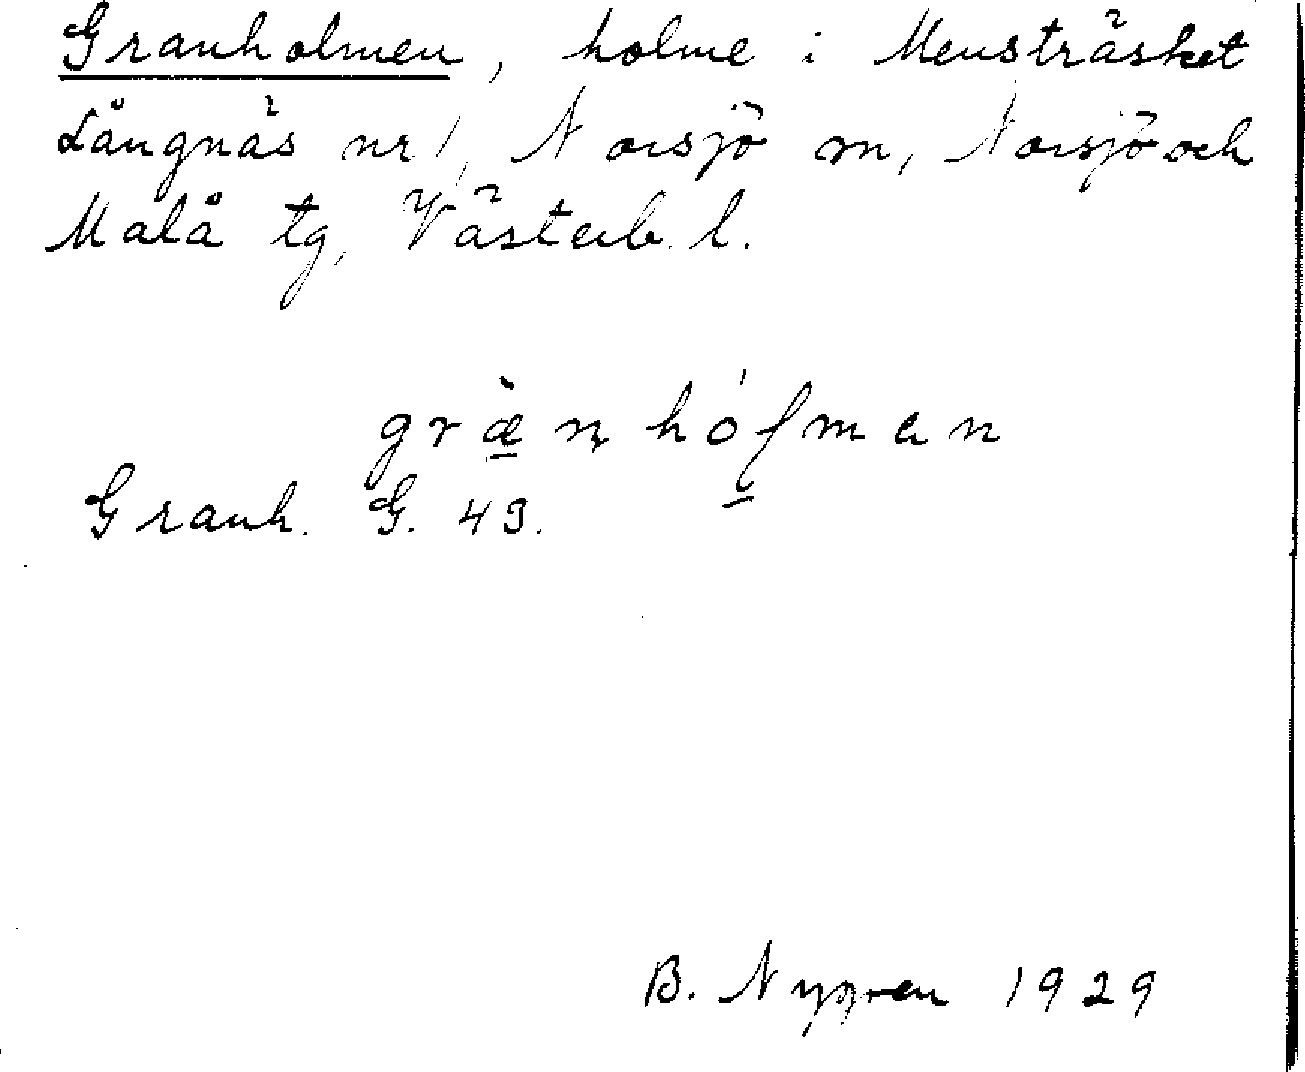 Granholmen, holme i Mensträsket
Långnäs nr 1, Norsjö sn, Norsjö och
Malå tg, Västerb. l.
Granh. G. 43.
B. Nygren 1929